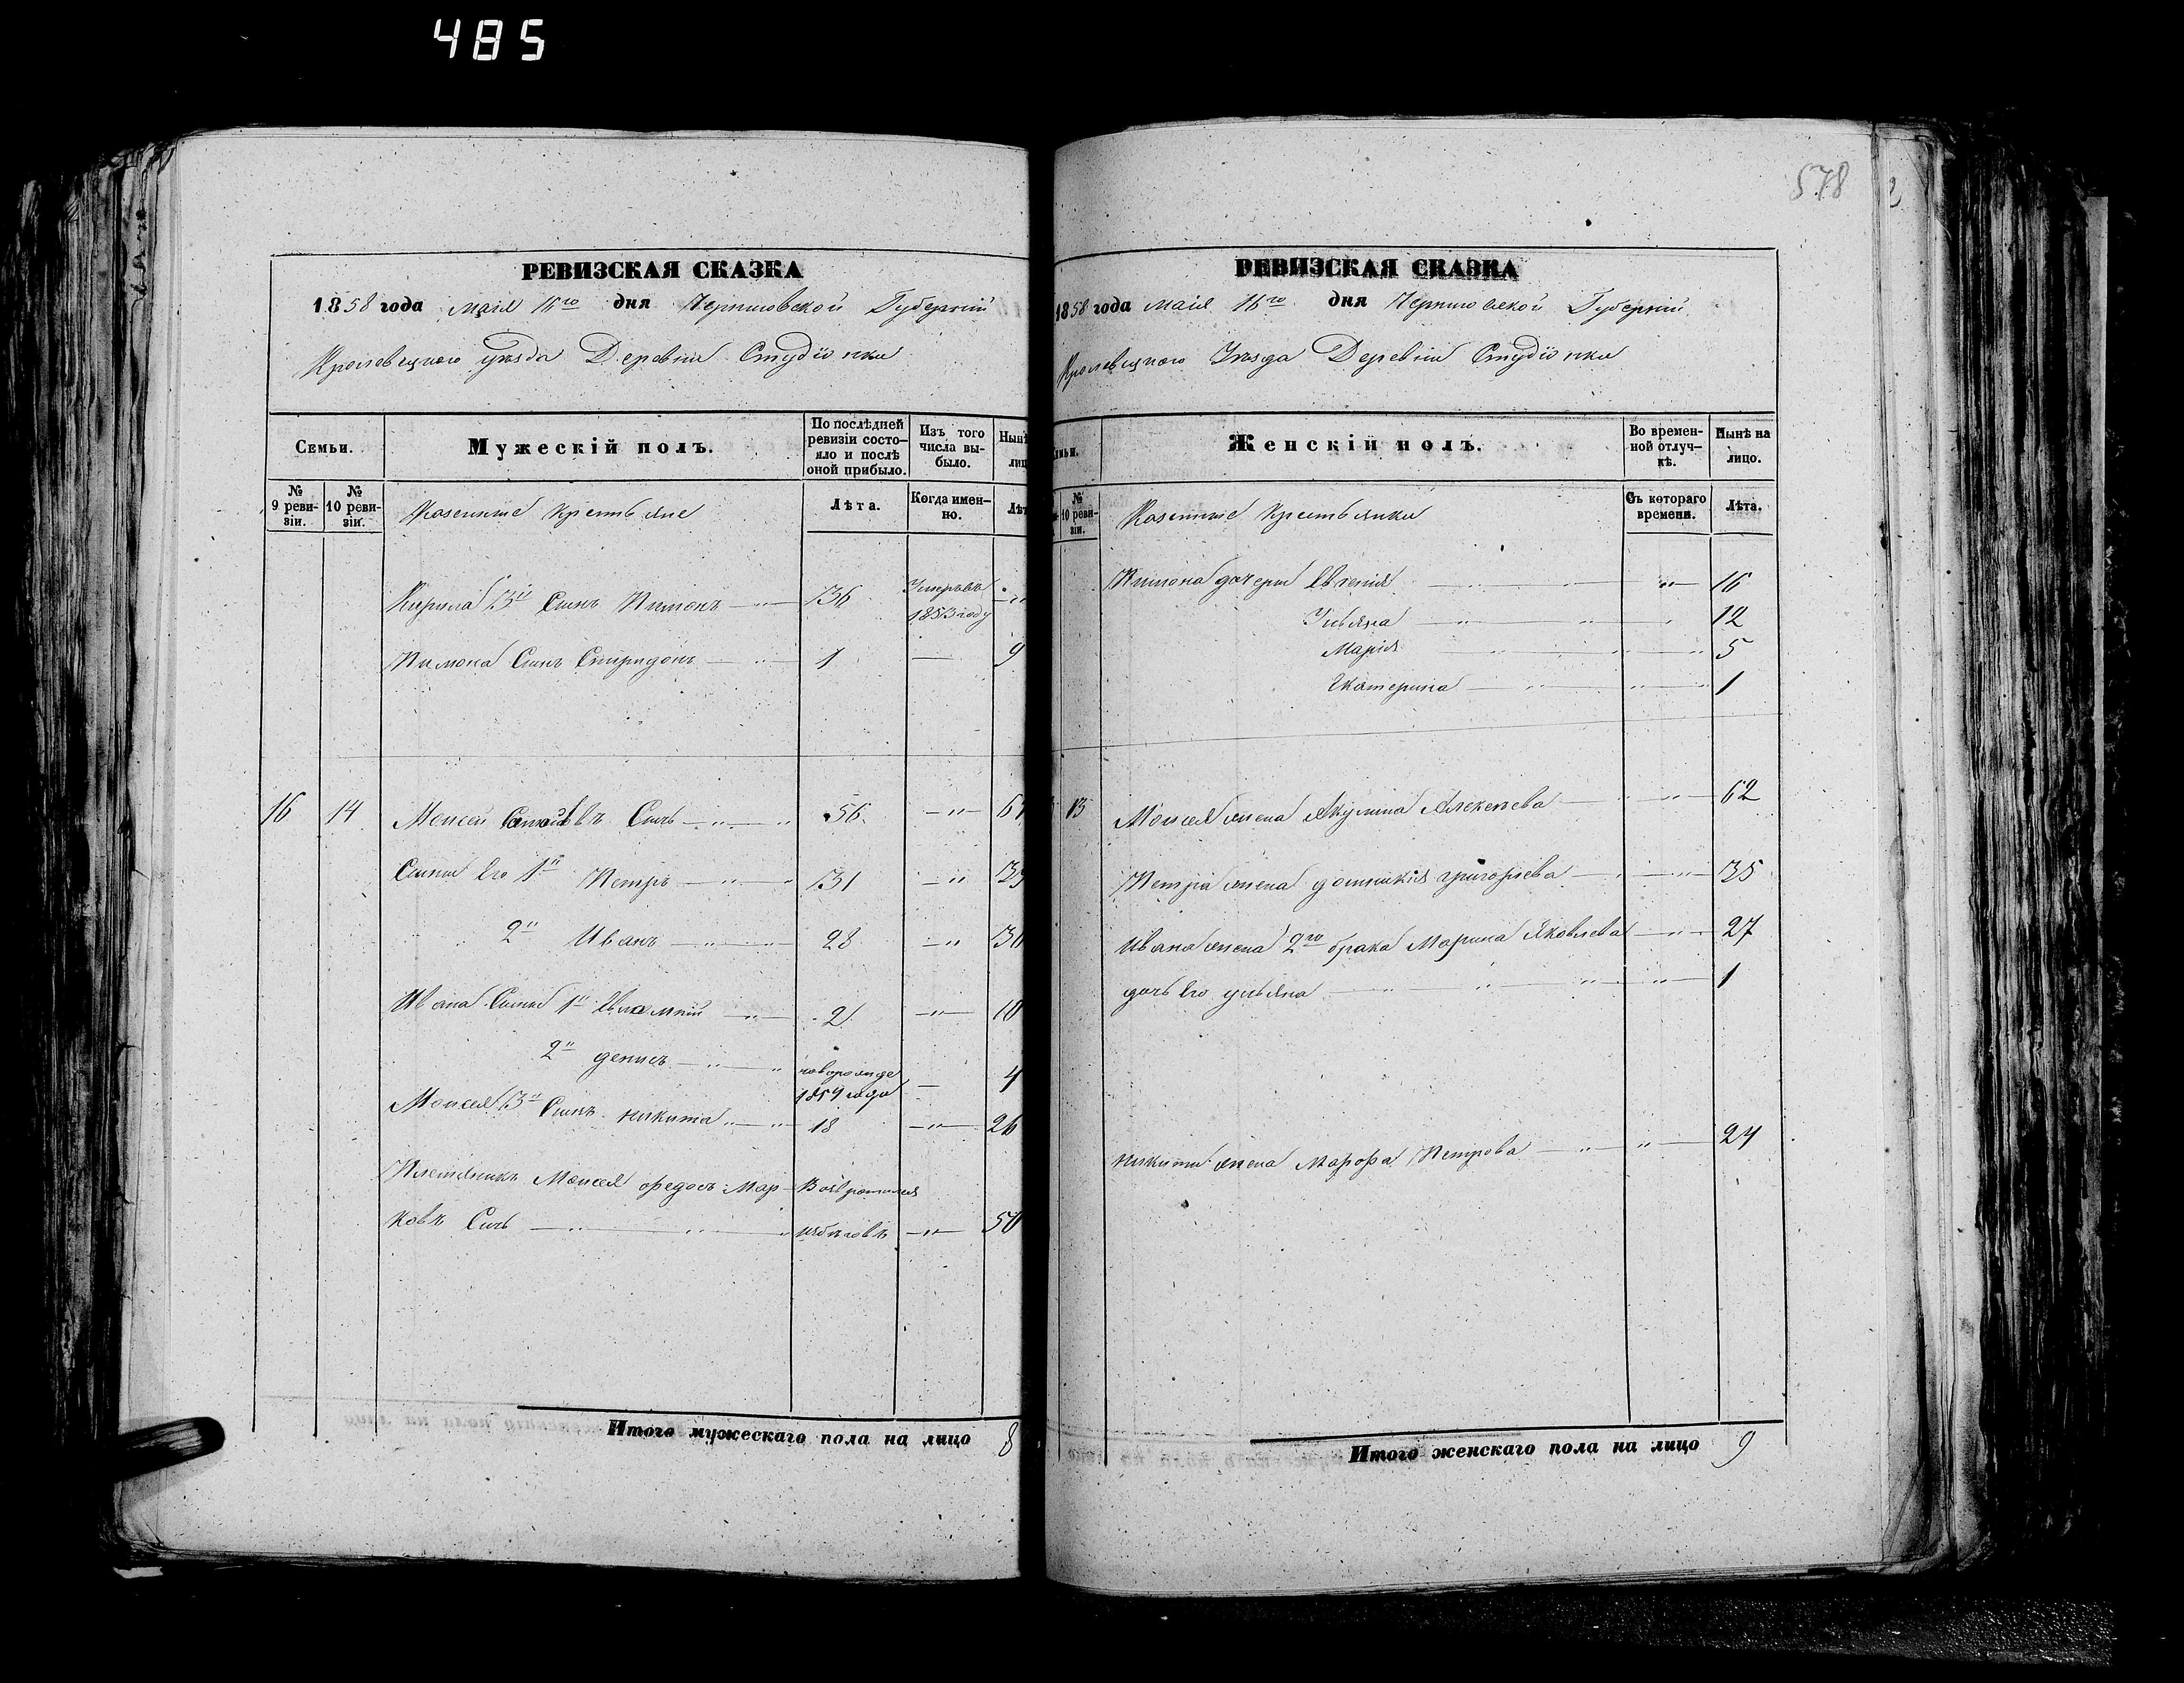 485
578
РЕВИЗСКАЯ СКАЗКА
1858 года маія 16го дня Черниговской Губерніи
Кролевецкого уѣзда Деревни Студіонки
Семьи.
Мужескій полъ.
По послѣдней ревизіи состо-
яло и послѣ оной прибыло.
Изъ того числа вы-
было.
Нынѣ
лиц
№ 9 реви-
зіи.
№ 10 реви-
зіи.
Казенные крестьяне
Лѣта.
Когда имен-
но.
Лѣт
Кирила 3й Сынъ Пимонъ 36 Умеръ въ
1853 году
Пимона Сынъ Спиридонъ 1 9
16 14 Моисей Сынъ 56
Сыны Его 1й Петръ 31
2й Иванъ 28
Ивана Сыны 1й 2 10
2й денисъ новорожде 4
Моисея 3й Сынъ никита 18 26
Племянникъ Моисея федосъ Мар- Возвратился
ковъ Сынъ избѣговъ 50
Итого мужескаго пола на лицо 8
РЕВИЗСКАЯ СКАЗКА
1858 года маія 16го дня Черниговской Губерніи
Кролевецкого Уѣзда Деревни Студіонки
Женскій полъ.
Во времен-
ной отлуч-
кѣ.
Нынѣ на
лицо.
№
10 реви-
зіи.
Казенные крестьянки
Съ котораго
времени.
Лѣта.
Пимона дочери Евгенія 16
Ульяна 12
Марія 5
Екатерина 1
13 Моисея жена Акулина Алексѣева 62
Петра жена григорьева 35
Ивана жена 2го брака Марина Яковлева 27
дочь Его ульяна 1
никиты жена Марфа Петрова 24
Итого женскаго пола на лицо 9